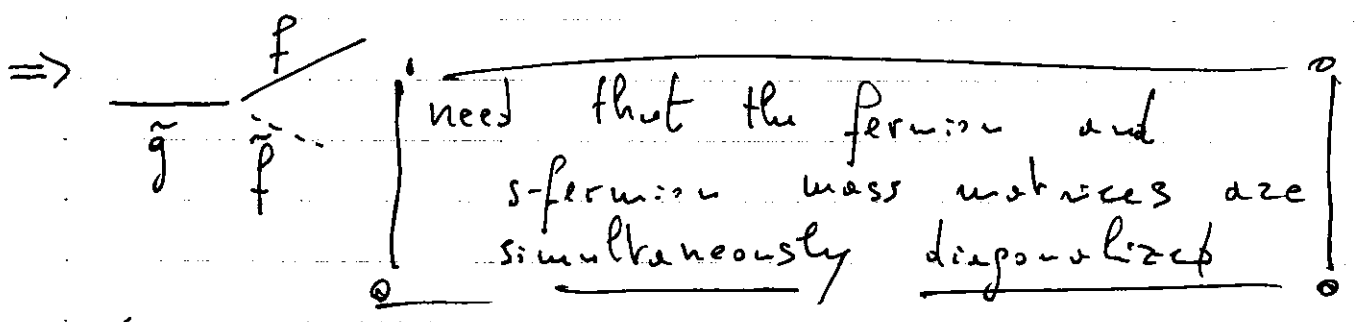 ⇒ f
g̃ f̃
need that the fermion and
s-fermion mass matrices are
simultaneously diagonalized